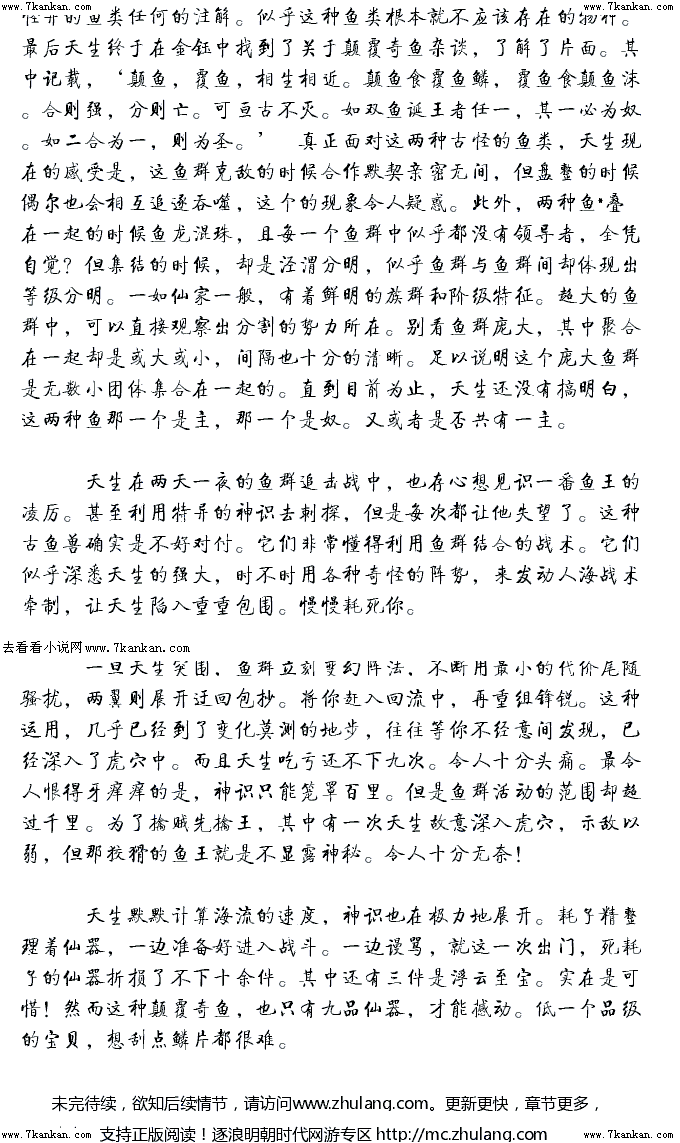 www.7kankan.com www.7kankan.com
怪异的鱼类任何的注解。似乎这种鱼类根本就不应该存在的物种。
最后天生终于在金钰中找到了关于颠覆奇鱼杂谈，了解了片面。其
中记载，‘颠鱼，覆鱼，相生相近。颠鱼食覆鱼鳞，覆鱼食颠鱼沫
。合则强，分则亡。可亘古不灭。如双鱼诞王者任一，其一必为奴
。如二合为一，则为圣。’ 真正面对这两种古怪的鱼类，天生现
在的感受是，这鱼群克敌的时候合作默契亲密无间，但盘整的时候
偶尔也会相互追逐吞噬，这个的现象令人疑惑。此外，两种鱼·叠
在一起的时候鱼龙混珠，且每一个鱼群中似乎都没有领导者，全凭
自觉？但集结的时候，却是泾渭分明，似乎鱼群与鱼群间却体现出
等级分明。一如仙家一般，有着鲜明的族群和阶级特征。超大的鱼
群中，可以直接观察出分割的势力所在。别看鱼群庞大，其中聚合
在一起却是或大或小，间隔也十分的清晰。足以说明这个庞大鱼群
是无数小团体集合在一起的。直到目前为止，天生还没有搞明白，
这两种鱼那一个是主，那一个是奴。又或者是否共有一主。
天生在两天一夜的鱼群追击战中，也存心想见识一番鱼王的
凌厉。甚至利用特异的神识去刺探，但是每次都让他失望了。这种
古鱼兽确实是不好对付。它们非常懂得利用鱼群结合的战术。它们
似乎深悉天生的强大，时不时用各种奇怪的阵势，来发动人海战术
牵制，让天生陷入重重包围。慢慢耗死你。
去看看小说网www.7kankan.com www.7kankan.com
一旦天生突围，鱼群立刻变幻阵法，不断用最小的代价尾随
骚扰，两翼则展开迂回包抄。将你赶入回流中，再重组锋锐。这种
运用，几乎已经到了变化莫测的地步，往往等你不经意间发现，已
经深入了虎穴中。而且天生吃亏还不下九次。令人十分头痛。最令
人恨得牙痒痒的是，神识只能笼罩百里。但是鱼群活动的范围却超
过千里。为了擒贼先擒王，其中有一次天生故意深入虎穴，示敌以
弱，但那狡猾的鱼王就是不显露神秘。令人十分无奈！
天生默默计算海流的速度，神识也在极力地展开。耗子精整
理着仙器，一边准备好进入战斗。一边谩骂，就这一次出门，死耗
子的仙器折损了不下十余件。其中还有三件是浮云至宝。实在是可
惜！然而这种颠覆奇鱼，也只有九品仙器，才能撼动。低一个品级
的宝贝，想刮点鳞片都很难。
未完待续，欲知后续情节，请访问www.zhulang.com。更新更快，章节更多，
支持正版阅读！逐浪明朝时代网游专区 http://mc.zhulang.com
www.7kankan.com www.7kankan.com